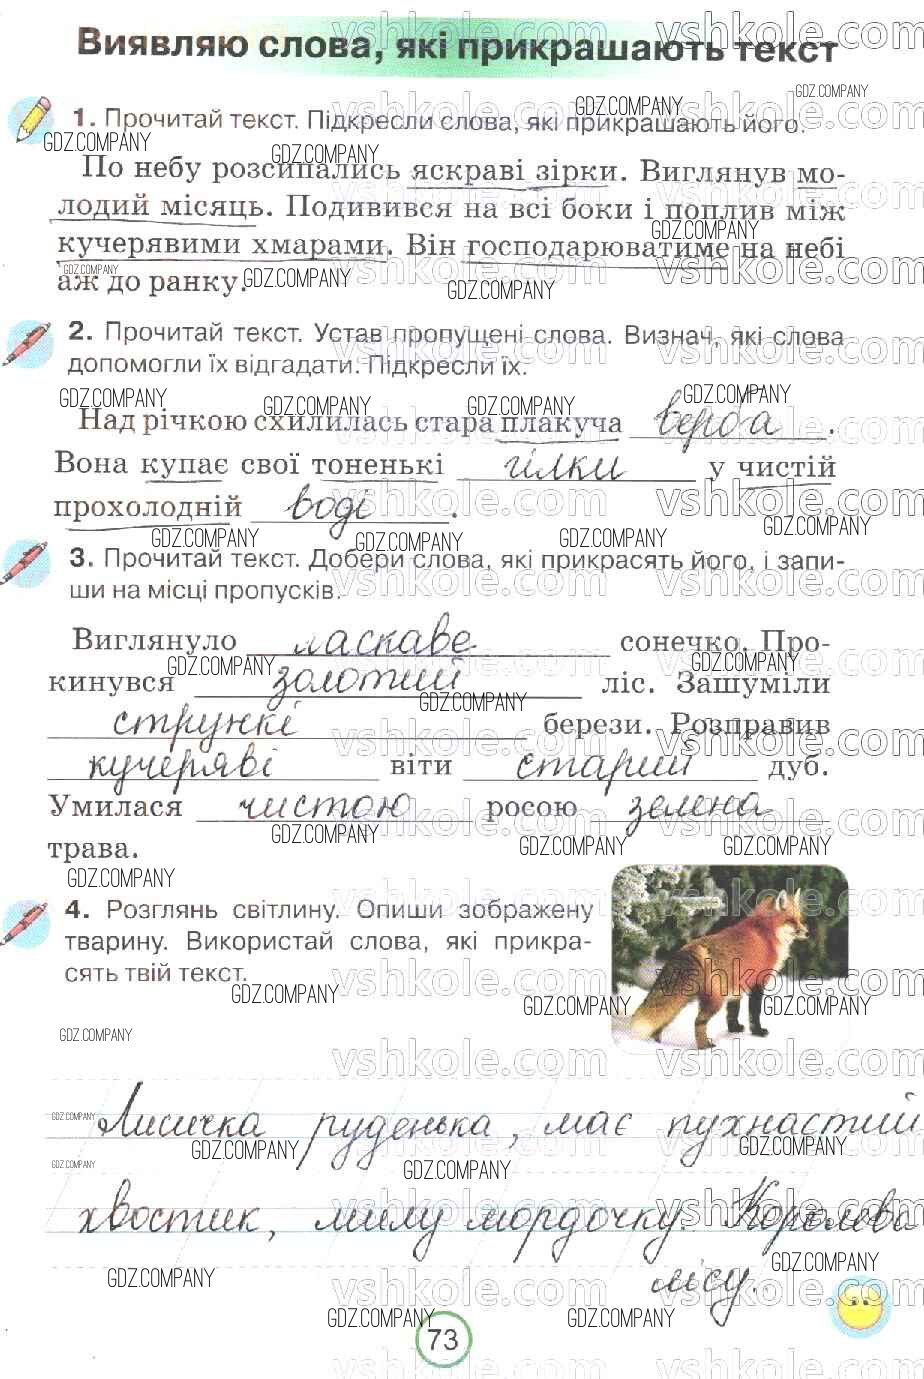 Виявляю слова, які прикрашають текст
1. Прочитай текст. Підкресли слова, які прикрашають його.
По небу розсипались яскраві зірки. Виглянув мо-
лодий місяць. Подивився на всі боки і поплив між
кучерявими хмарами. Він господарюватиме на небі
аж до ранку.
2. Прочитай текст. Устав пропущені слова. Визнач, які слова
допомогли їх відгадати. Підкресли їх.
Над річкою схилилась стара плакуча верба.
Вона купає свої тоненькі гілки у чистій
прохолодній воді.
3. Прочитай текст. Добери слова, які прикрасять його, і запи-
ши на місці пропусків.
Виглянуло ласкаве сонечко. Про-
кинувся золотий ліс. Зашуміли
стрункі берези. Розправив
кучеряві віти старий дуб.
Умилася чистою росою зелена
трава.
4. Розглянь світлину. Опиши зображену
тварину. Використай слова, які прикра-
сять твій текст.
Лисичка руденька, має пухнастий
хвостик, милу мордочку. Королева
лісу.
73
vshkole.com
GDZ.COMPANY